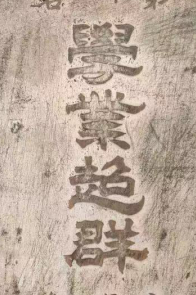 學業超群